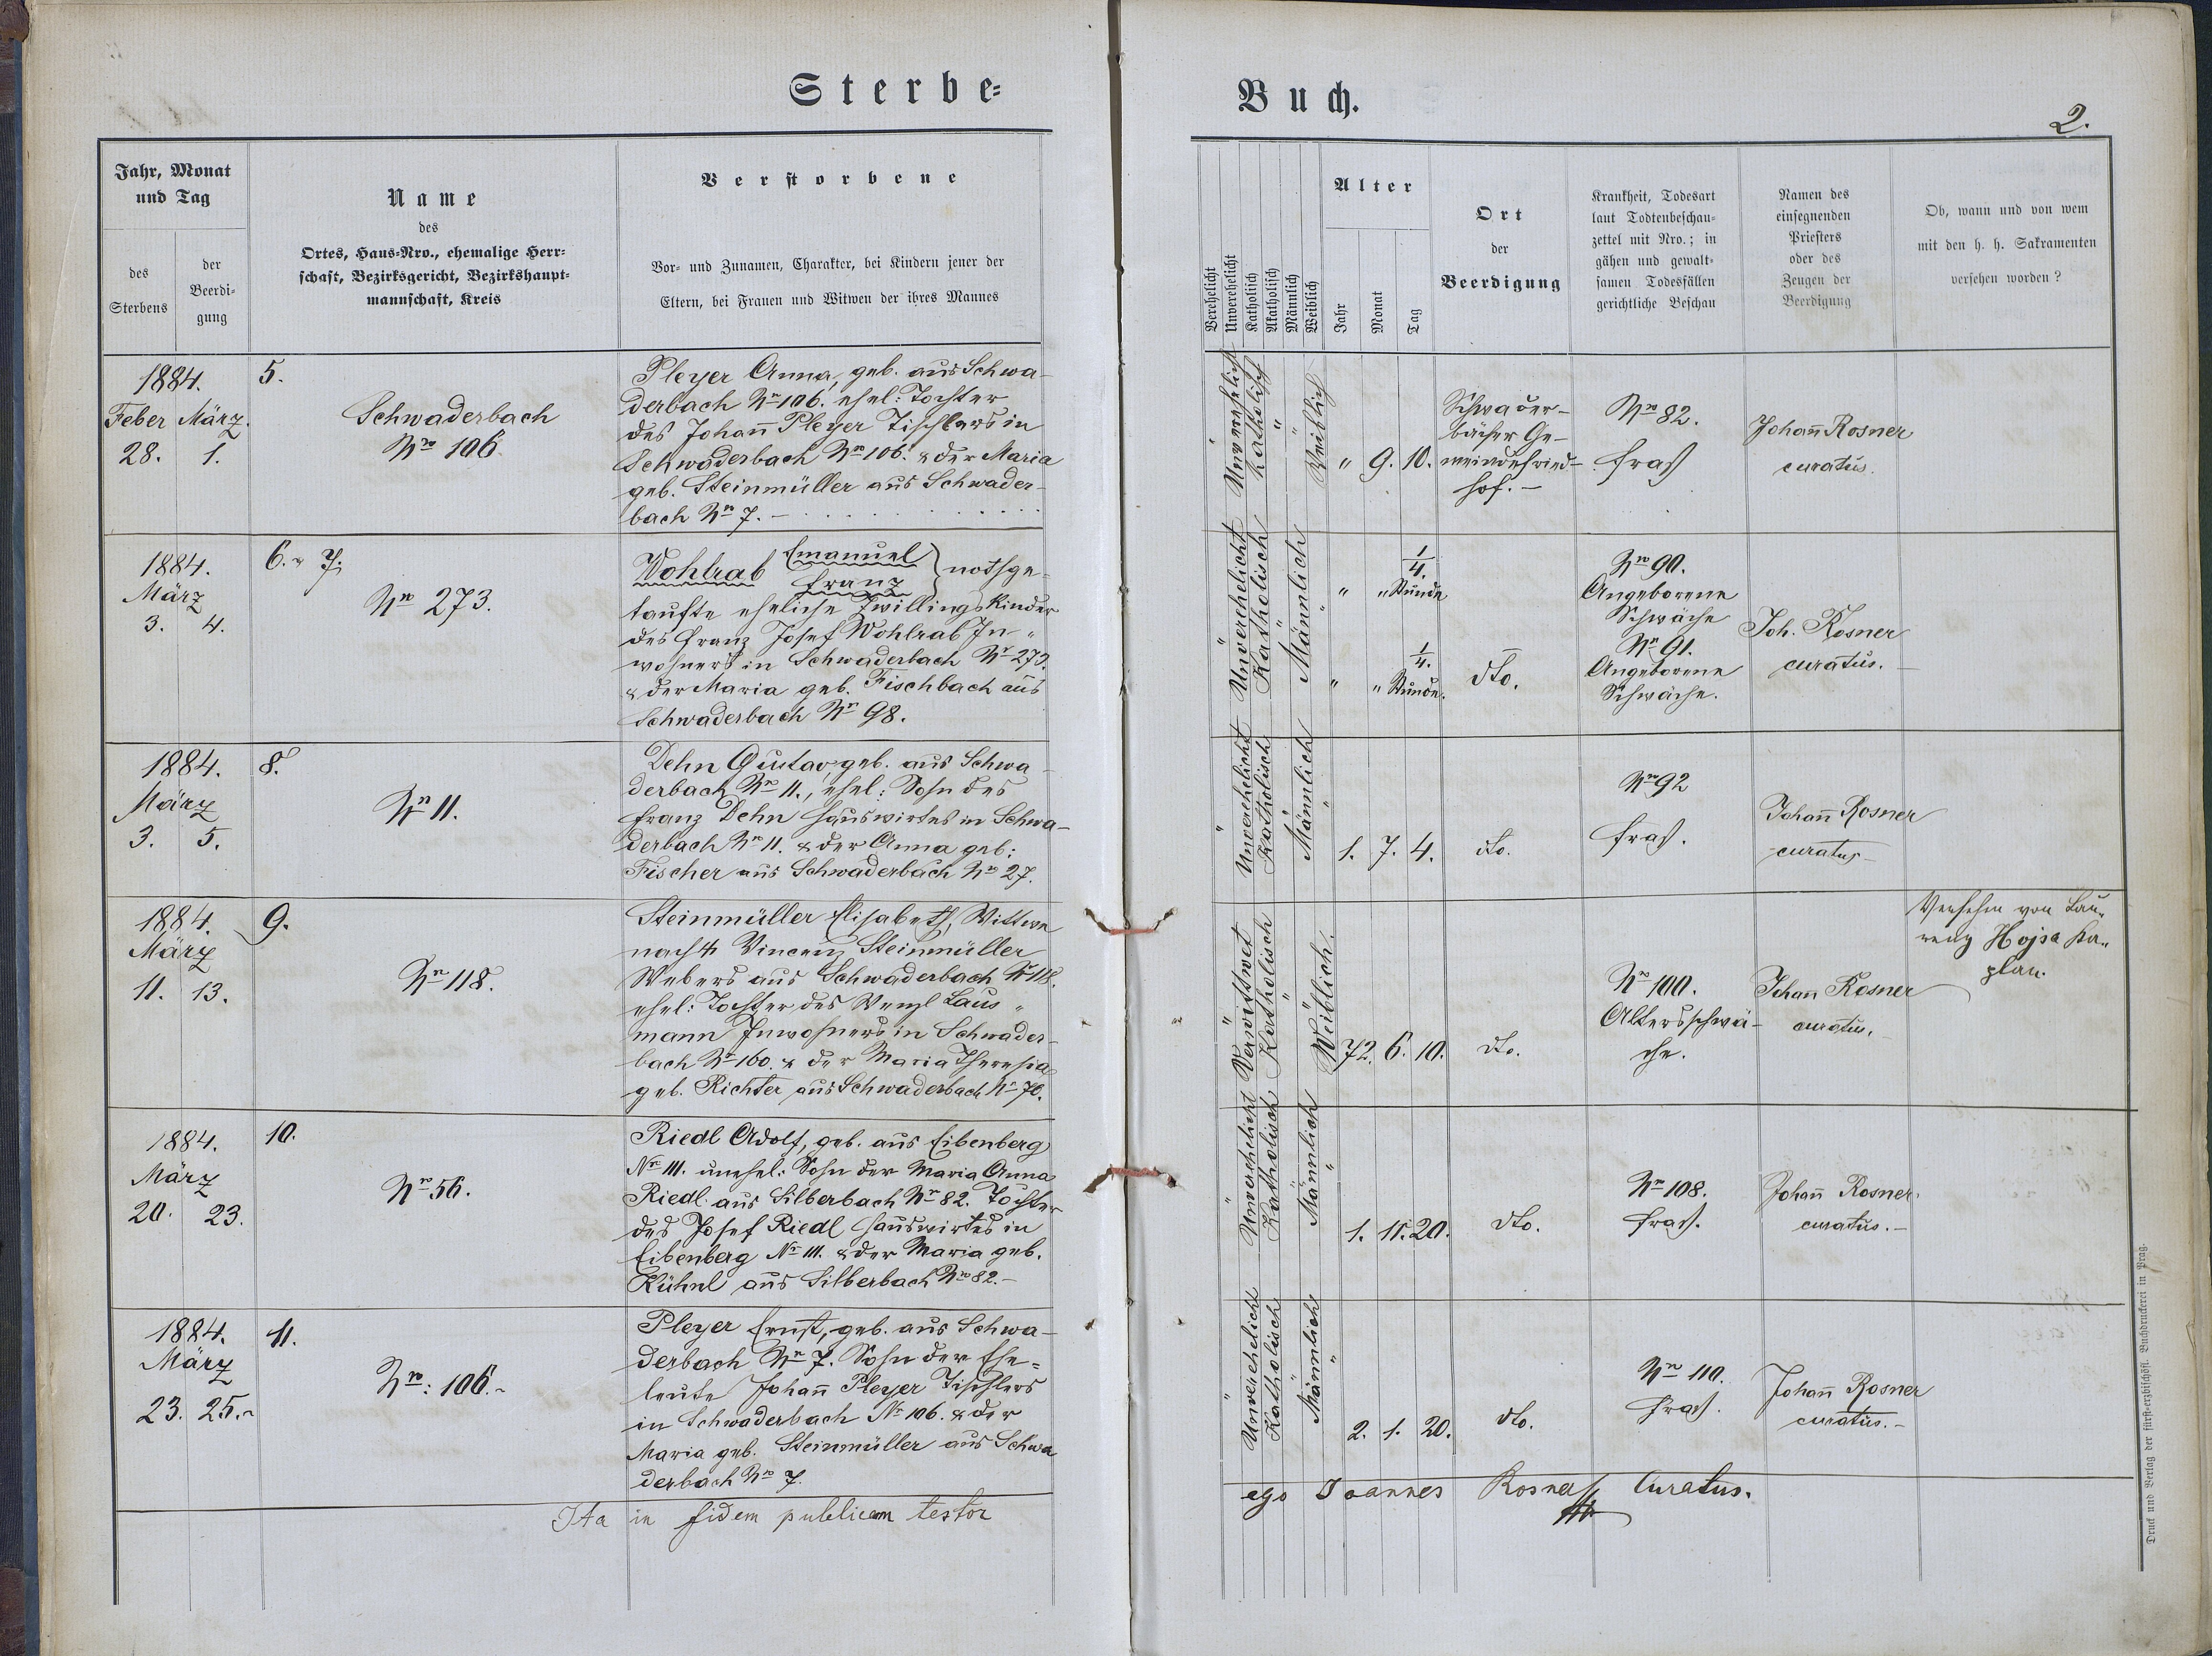 Sterbe=
Buch.
2.
Jahr, Monat
und Tag
des
Sterbens
der
Beerdi-
gung
Name
des
Ortes, Haus-Nro., ehemalige Herr-
schaft, Bezirksgericht, Bezirkshaupt-
mannschaft, Kreis
Verstorbene
Vor- und Zunamen, Charakter, bei Kindern jener der
Eltern, bei Frauen und Witwen der ihres Mannes
Verehelicht
Unverehelicht
Katholisch
Akatholisch
Männlich
Weiblich
Alter
Jahr
Monat
Tag
Ort
der
Beerdigung
Krankheit, Todesart
laut Todtenbeschau-
zettel mit Nro.; in
gähen und gewalt-
samen Todesfällen
gerichtliche Beschau
Namen des
einsegnenden
Priesters
oder des
Zeugen der
Beerdigung
Ob, wann und von wem
mit den h. h. Sakramenten
versehen worden?
1884.
Feber März.
28. 1.
5.
Schwaderbach
Nro 106
Pleyer Anna, geb. aus Schwa-
derbach Nr 106. ehel: Tochter
des Johann Pleyer Tischlers in
Schwaderbach Nr 106. & der Maria
geb. Steinmüller aus Schwader-
bach Nr 7. -
Unverehelicht
Katholisch
Weiblich
" 9. 10.
Schwader-
bacher Ge-
meindefried-
hof. -
Nro 82.
Fras
Johann Rosner
curatus.
1884.
März
3. 4.
6. & 7.
Nro 273.
Wohlrab Emanuel
Franz } nothge-
taufte eheliche Zwillingskinder
des Franz Josef Wohlrab In-
wohners in Schwaderbach Nr 273.
& der Maria geb. Fischbach aus
Schwaderbach Nr 98.
Unverehelicht
Katholisch
Männlich
" " 1/4. Stunde
" " 1/4. Stunde.
dto.
Nro 90.
Angeborene
Schwäche
Nr 91.
Angeborene
Schwäche.
Joh. Rosner
curatus. -
1884.
März
3. 5.
8.
Nr 11.
Dehn Gustav geb. aus Schwa-
derbach Nr 11., ehel: Sohn des
Franz Dehn Hauswirtes in Schwa-
derbach Nr 11. & der Anna geb:
Fischer aus Schwaderbach Nr 27.
Unverehelicht
Katholisch
Männlich
1. 7. 4.
dto.
Nro 92
Fras.
Johann Rosner
curatus
1884.
März
11. 13.
9.
Nr 118.
Steinmüller Elisabeth, Wittwe
nach Vincenz Steinmüller
Webers aus Schwaderbach Nr 118.
ehel: Tochter des Wenzl Laus-
mann Inwohners in Schwader-
bach Nr 160. & der Maria Theresia
geb. Richter aus Schwaderbach Nr 70.
Verwittwet
Katholisch
Weiblich.
72. 6. 10.
dto.
Nro 100.
Altersschwä-
che.
Johann Rosner
curatus.
Versehen von Lau-
renz Hojsa Ka-
plan.
1884.
März
20. 23.
10.
Nro 56.
Riedl Adolf, geb. aus Eibenberg
Nr 111. unehel: Sohn der Maria Anna
Riedl aus Silberbach Nr 82. Tochter
des Josef Riedl Hauswirtes in
Eibenberg Nr 111. & der Maria geb.
Kühnl aus Silberbach Nro 82. -
Unverehelicht
Katholisch
Männlich
1. 11. 20.
dto.
Nro 108.
Fras.
Johann Rosner
curatus. -
1884.
März
23. 25.
11.
Nro: 106.
Pleyer Ernst, geb. aus Schwa-
derbach Nr 7. Sohn der Ehe=
leute Johann Pleyer Tischlers
in Schwaderbach Nr 106. & der
Maria geb. Steinmüller aus Schwa
derbach Nro 7.
Unverehelicht
Katholisch
Männlich
2. 1. 20.
dto.
Nro 110.
Fras.
Johann Rosner
curatus. -
Ita in fidem publicam testor
ego Joannes Rosner Curatus.
Druck und Verlag der fürst-erzbischöfl. Buchdruckerei in Prag.